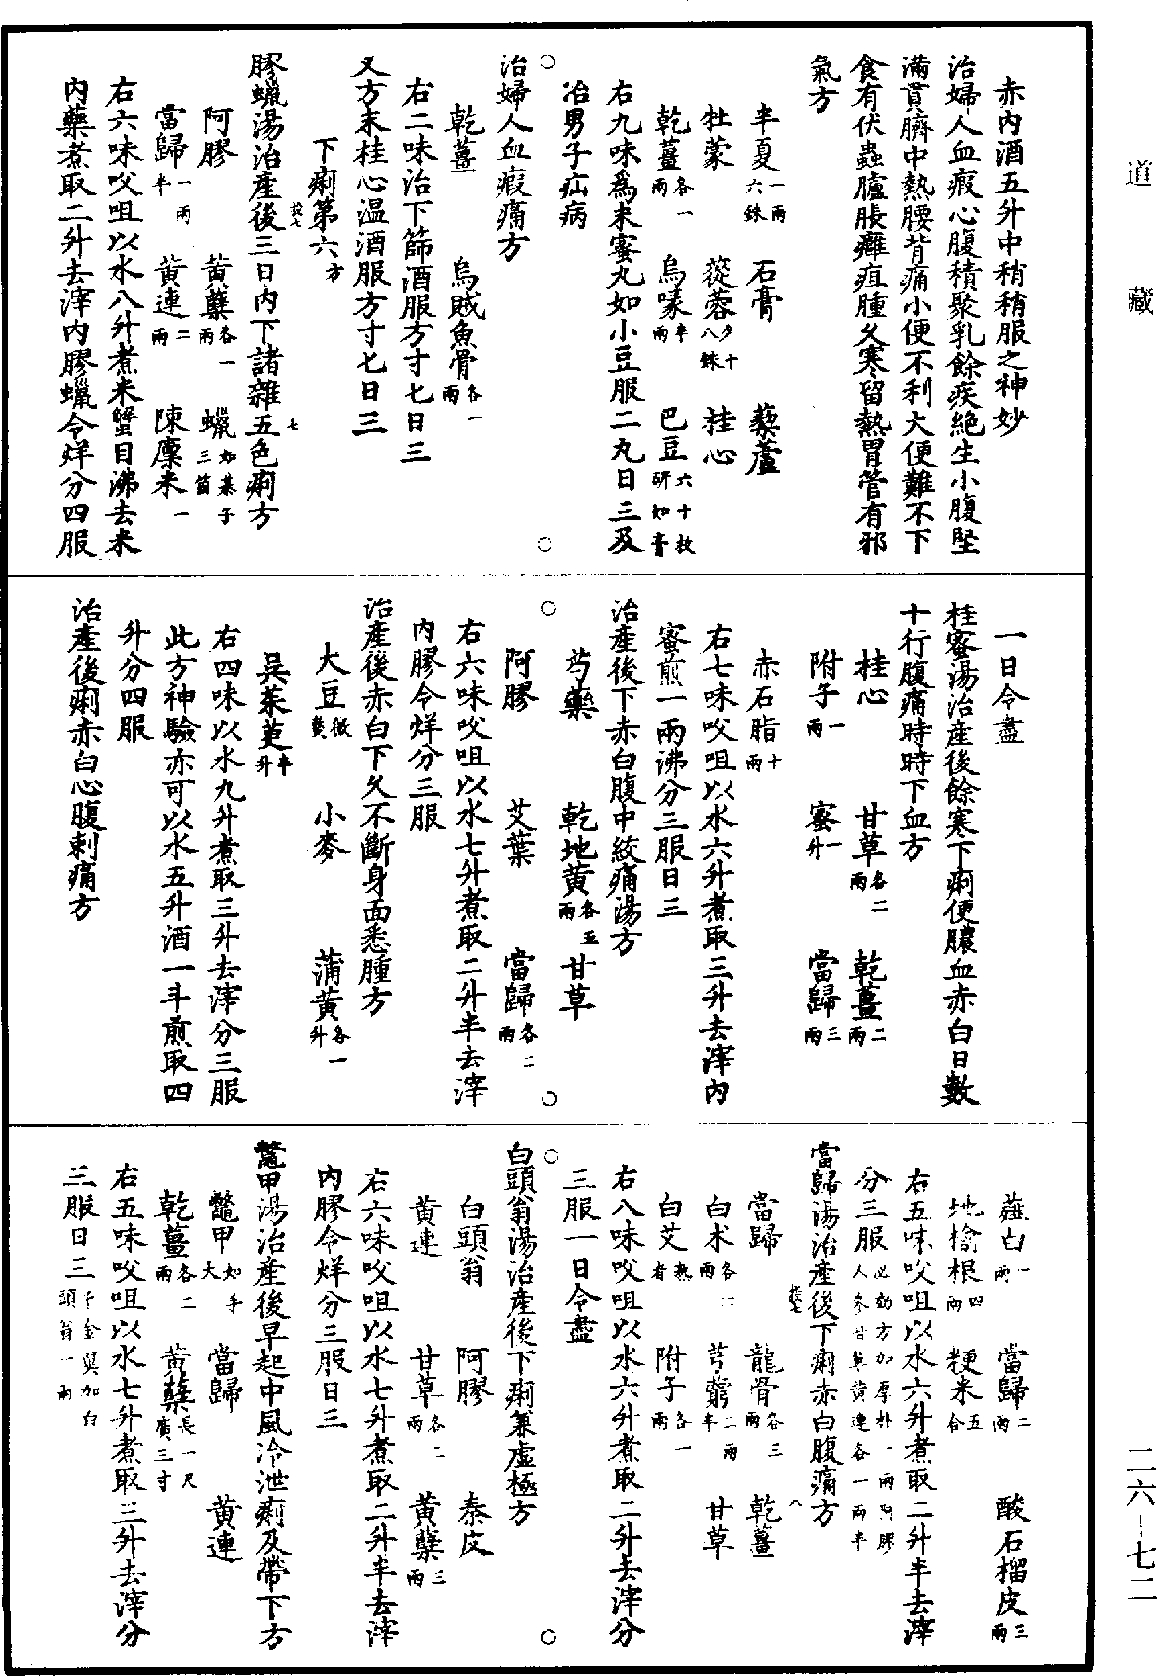 道藏
赤內酒五升中稍稍服之神妙
治婦人血瘕心腹積聚乳餘疾絕生小腹堅
滿貫臍中熱腰背痛小便不利大便難不下
食有伏蟲臚脹癰疽腫久寒留熱胃管有邪
氣方
半夏一兩六銖 石膏 藜蘆
牡蒙 蓯蓉各十八銖 桂心
乾薑各一兩 烏喙半兩 巴豆六十枚研如膏
右九味為末蜜丸如小豆服二丸日三及
治男子疝病
○ ○
治婦人血瘕痛方
乾薑 烏賊魚骨各一兩
右二味治下篩酒服方寸匕日三
又方末桂心溫酒服方寸匕日三
下痢第六方
膠蠟湯治產後三日內下諸雜五色痢方
阿膠 黃蘗各一兩 蠟如棊子三箇
當歸一兩半 黃連二兩 陳廩米一
右六味㕮咀以水八升煮米蟹目沸去米
內藥煮取二升去滓內膠蠟令烊分四服
一日令盡
桂蜜湯治產後餘寒下痢便膿血赤白日數
十行腹痛時時下血方
桂心 甘草各二兩 乾薑二兩
附子一兩 蜜一升 當歸三兩
赤石脂十兩
右七味㕮咀以水六升煮取三升去滓內
蜜煎一兩沸分三服日三
治產後下赤白腹中絞痛湯方
芍藥 乾地黃各五兩 甘草
○ ○
阿膠 艾葉 當歸各二兩
右六味㕮咀以水七升煮取二升半去滓
內膠令烊分三服
治產後赤白下久不斷身面悉腫方
大豆微熬 小麥 蒲黃各一升
吳茱萸半升
右四味以水九升煮取三升去滓分三服
此方神驗亦可以水五升酒一斗煎取四
升分四服
治產後痢赤白心腹刺痛方
薤白一兩 當歸二兩 酸石榴皮三兩
地榆根四兩 粳米五合
右五味㕮咀以水六升煮取二升半去滓
分三服必効方加厚朴一兩阿膠人參甘草黃連各一兩半
當歸湯治產後下痢赤白腹痛方
當歸 龍骨各三兩 乾薑
白朮各二兩 芎藭二兩半 甘草
白艾熟者 附子各一兩
右八味㕮咀以水六升煮取二升去滓分
三服一日令盡
○ ○
白頭翁湯治產後下痢兼虛極方
白頭翁 阿膠 秦皮
黃連 甘草各二兩 黃蘗三兩
右六味㕮咀以水七升煮取二升半去滓
內膠令烊分三服日三
鱉甲湯治產後早起中風冷泄痢及帶下方
鱉甲如手大 當歸 黃連
乾薑各二兩 黃蘗長一尺廣三寸
右五味㕮咀以水七升煮取三升去滓分
三服日三千金翼加白頭翁一兩
二六－七二